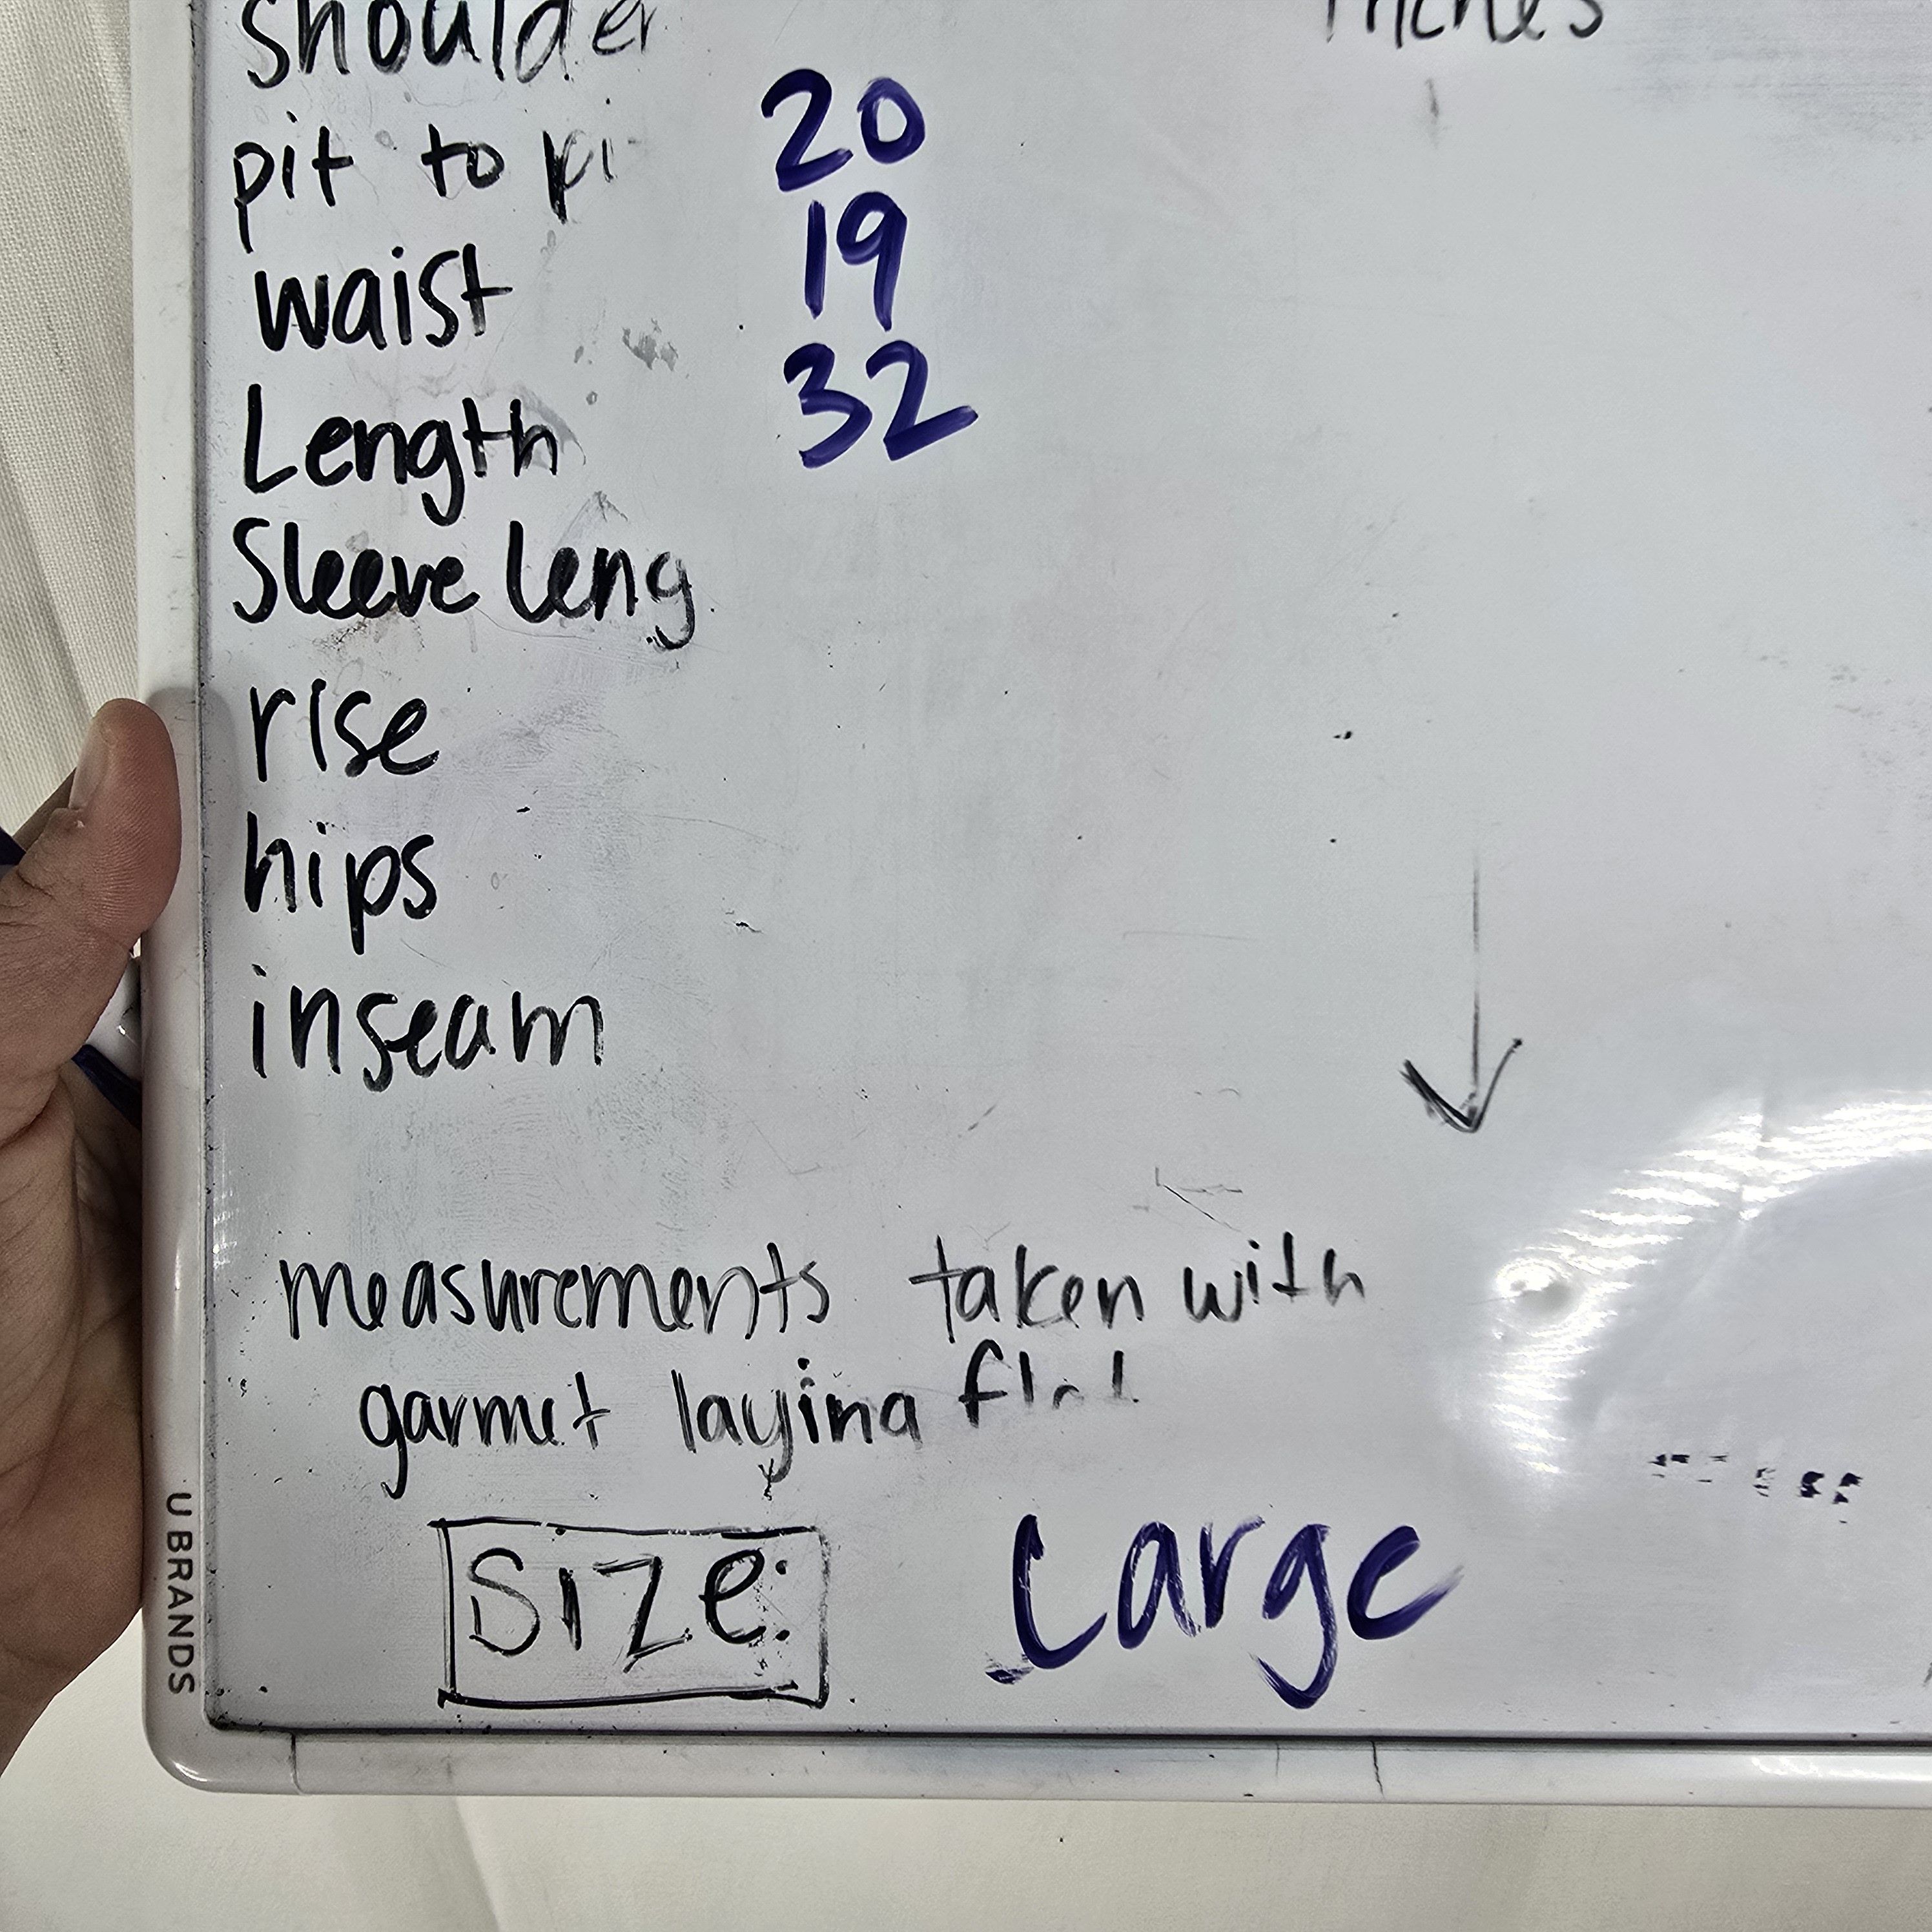 shoulder inches
pit to pi 20
waist 19
Length 32
Sleeve leng
rise
hips
inseam
measurements taken with
garmet laying flat
Size: Large
U BRANDS